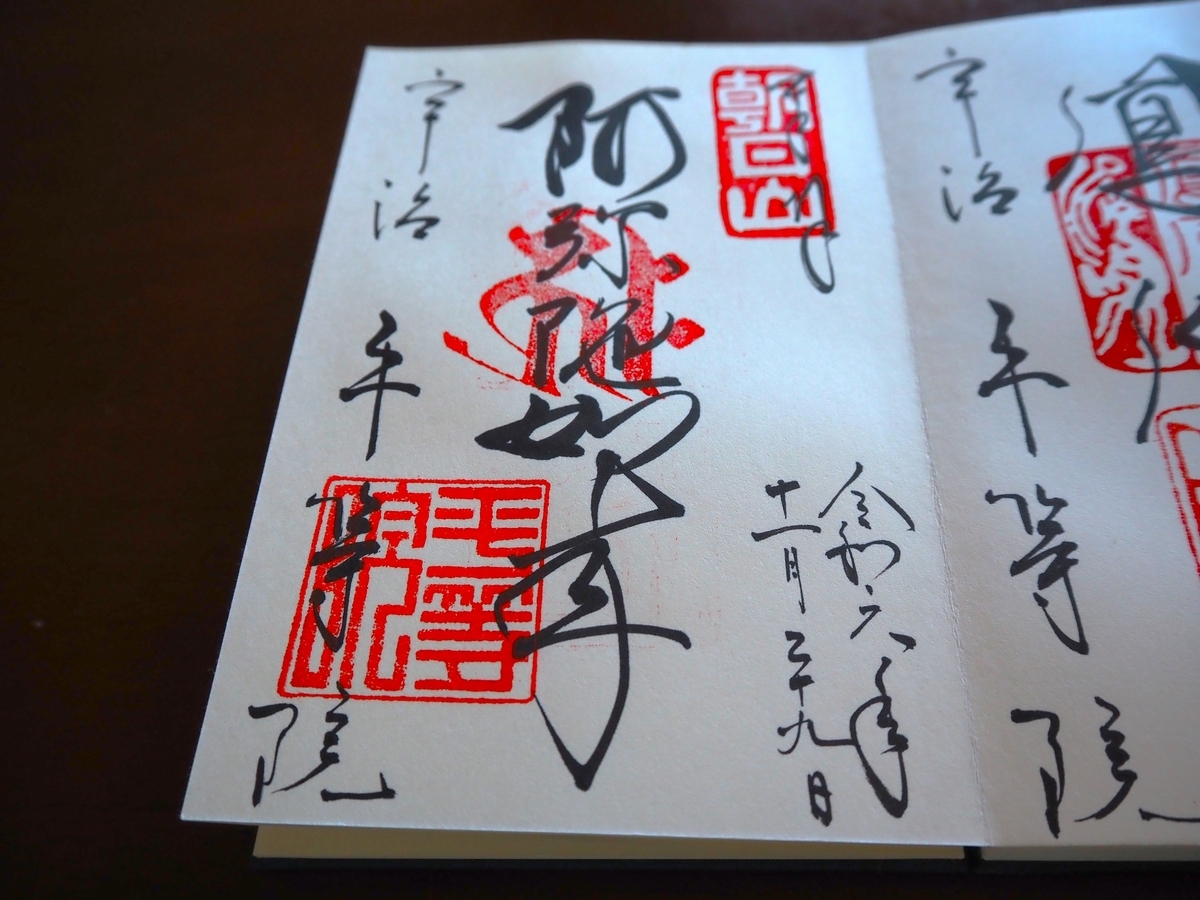 宇治 平等院
奉拝
朝日山
令和六年
十一月二十九日
阿弥陀如来
平等院印
宇治 平等院